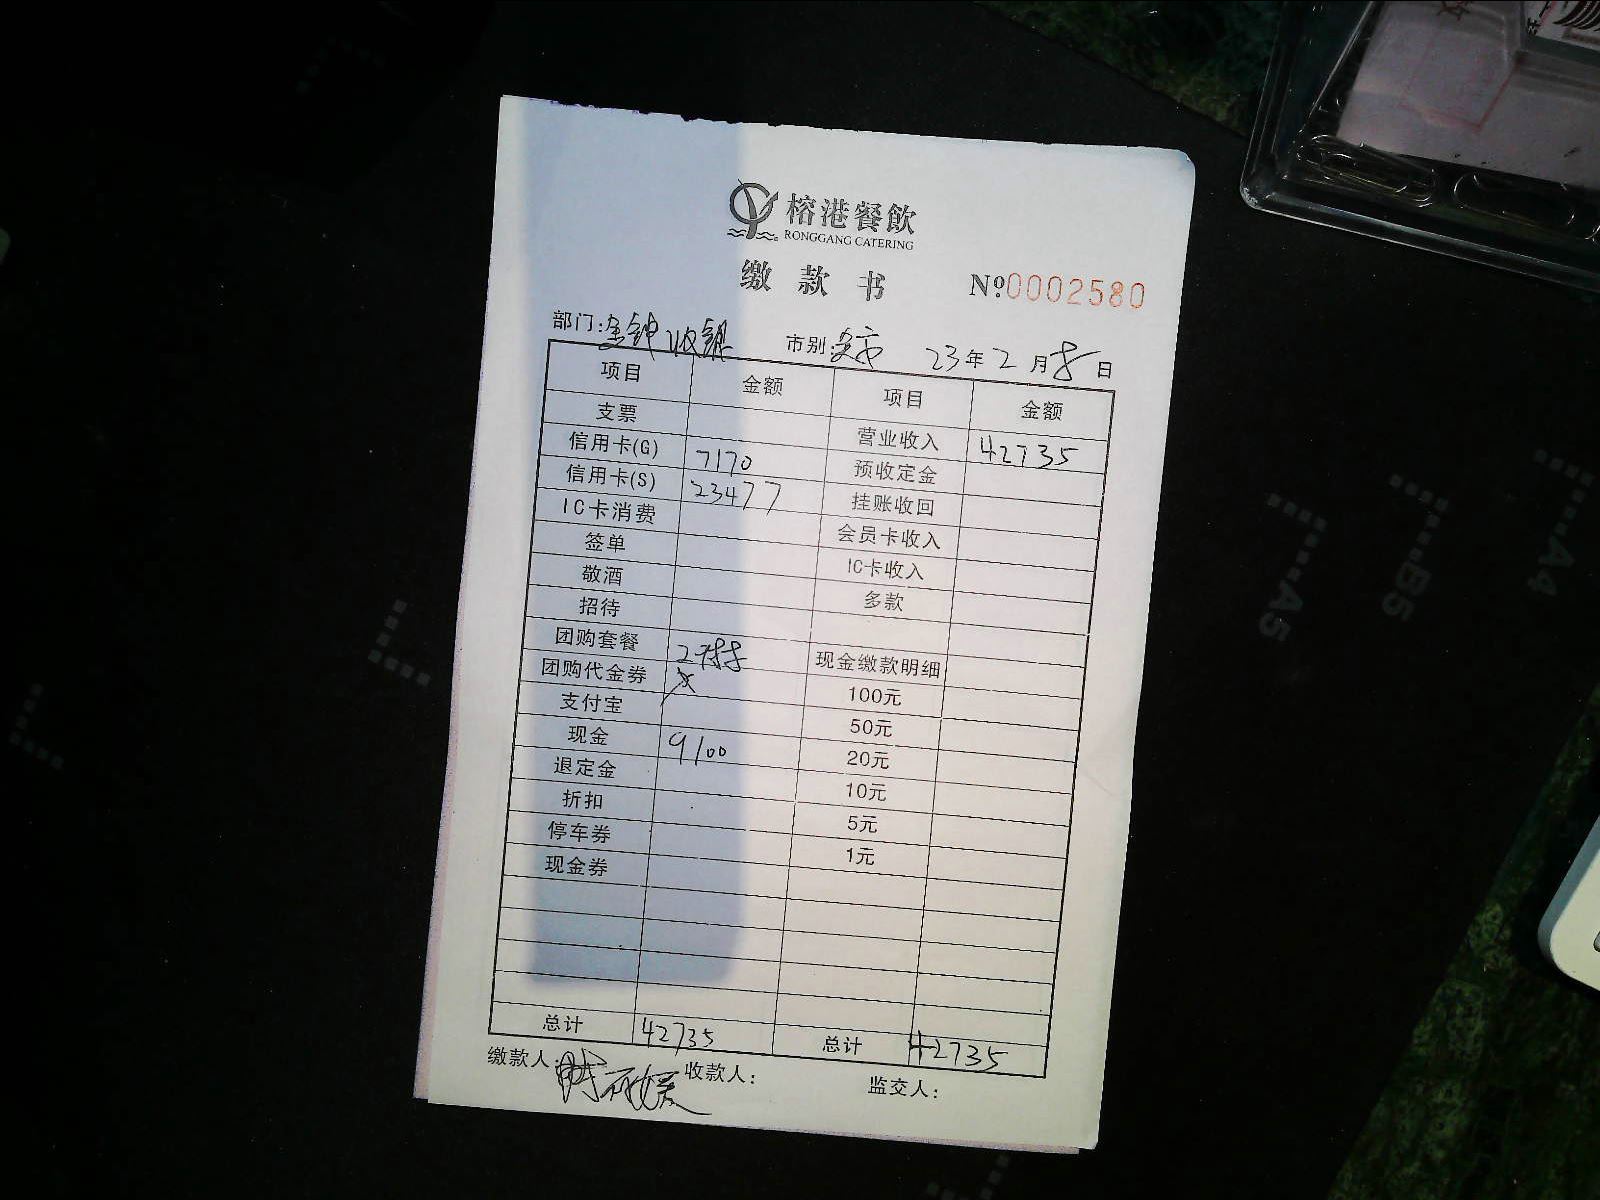 榕港餐飲
RONGGANG CATERING
缴款书 Nº0002580
部门:金钟收银 市别: 23年2月8日
项目 金额 项目 金额
支票 营业收入 42735
信用卡(G) 7170 预收定金
信用卡(S) 23477 挂账收回
IC卡消费 会员卡收入
签单 IC卡收入
敬酒 多款
招待
团购套餐 2988 现金缴款明细
团购代金券 100元
支付宝 50元
现金 9100 20元
退定金 10元
折扣 5元
停车券 1元
现金券
总计 42735 总计 42735
缴款人: 收款人: 监交人:
A5
B5
A4